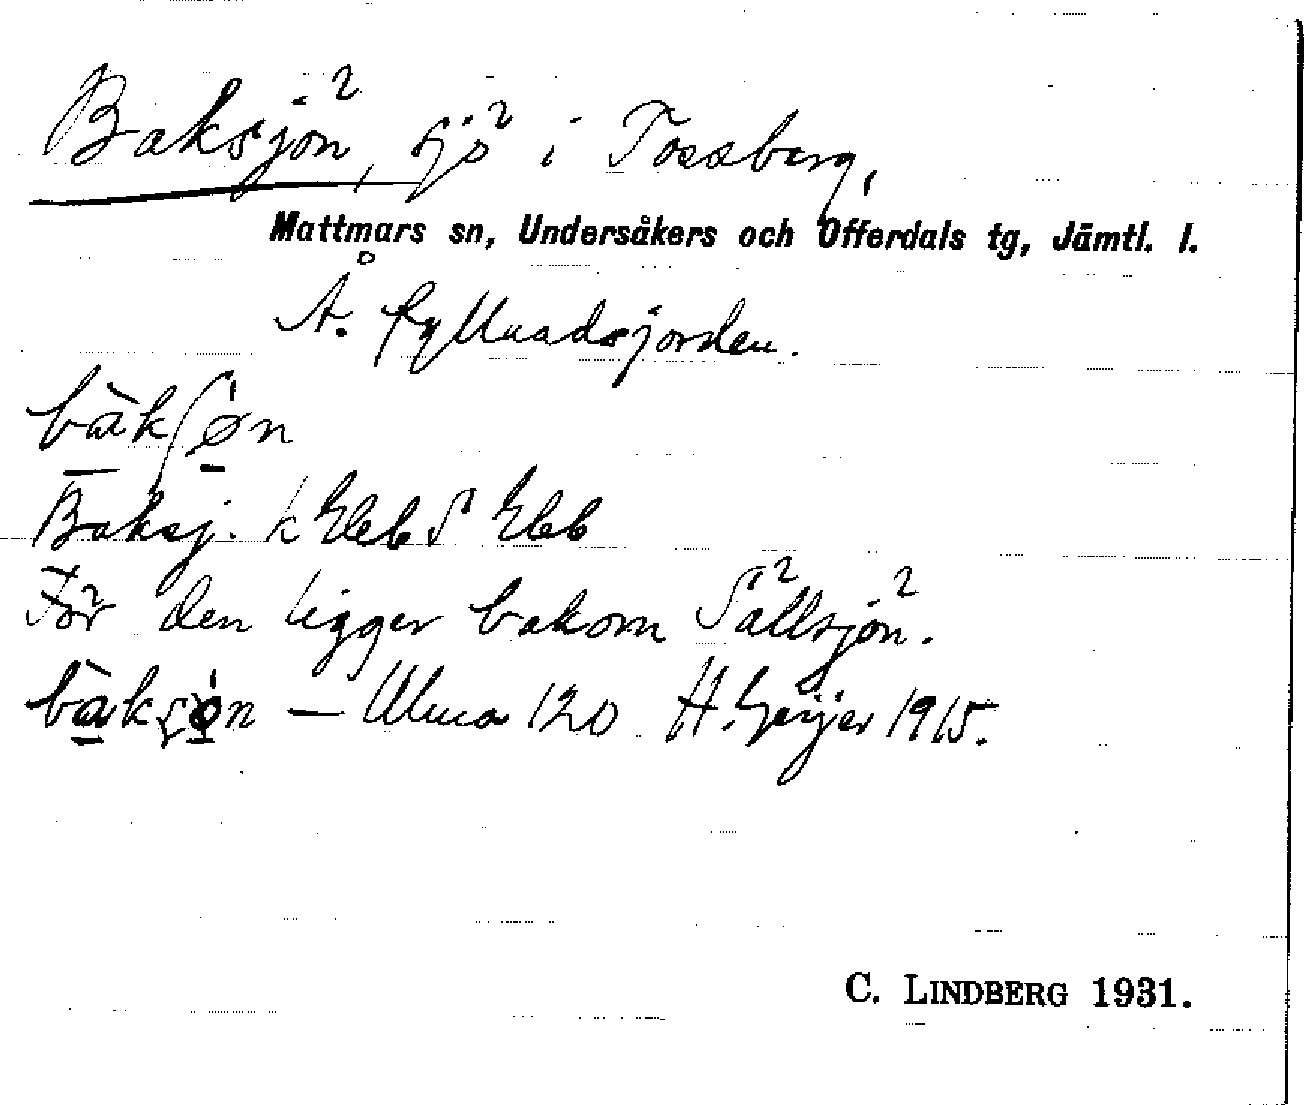 Baksjön, sjö i Tossberg,
Mattmars sn, Undersåkers och Offerdals tg, Jämtl. l.
Å. fyllnadsjorden.
bàkʃøn
Baksj. k Ebb S Ebb
För den ligger bakom Sällsjön.
bàkʂøn — Ulma 120 H. Geijer 1915.
C. LINDBERG 1931.